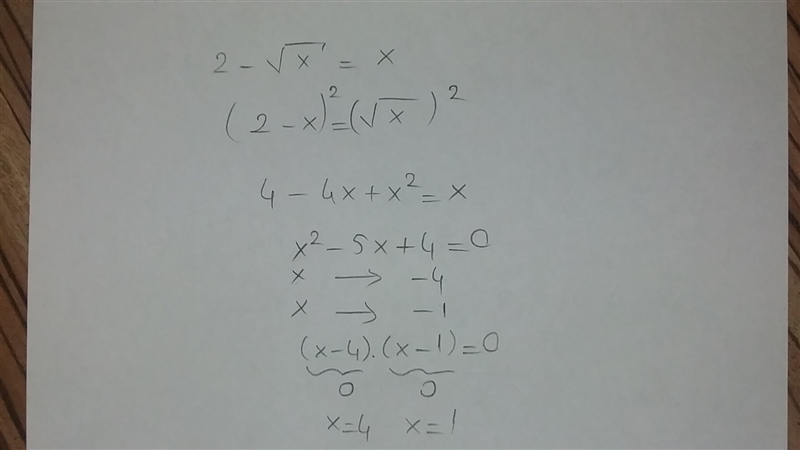 2 - √x = x
(2 - x)² = (√x)²
4 - 4x + x² = x
x² - 5x + 4 = 0
x → -4
x → -1
(x - 4).(x - 1) = 0
0 0
x = 4 x = 1